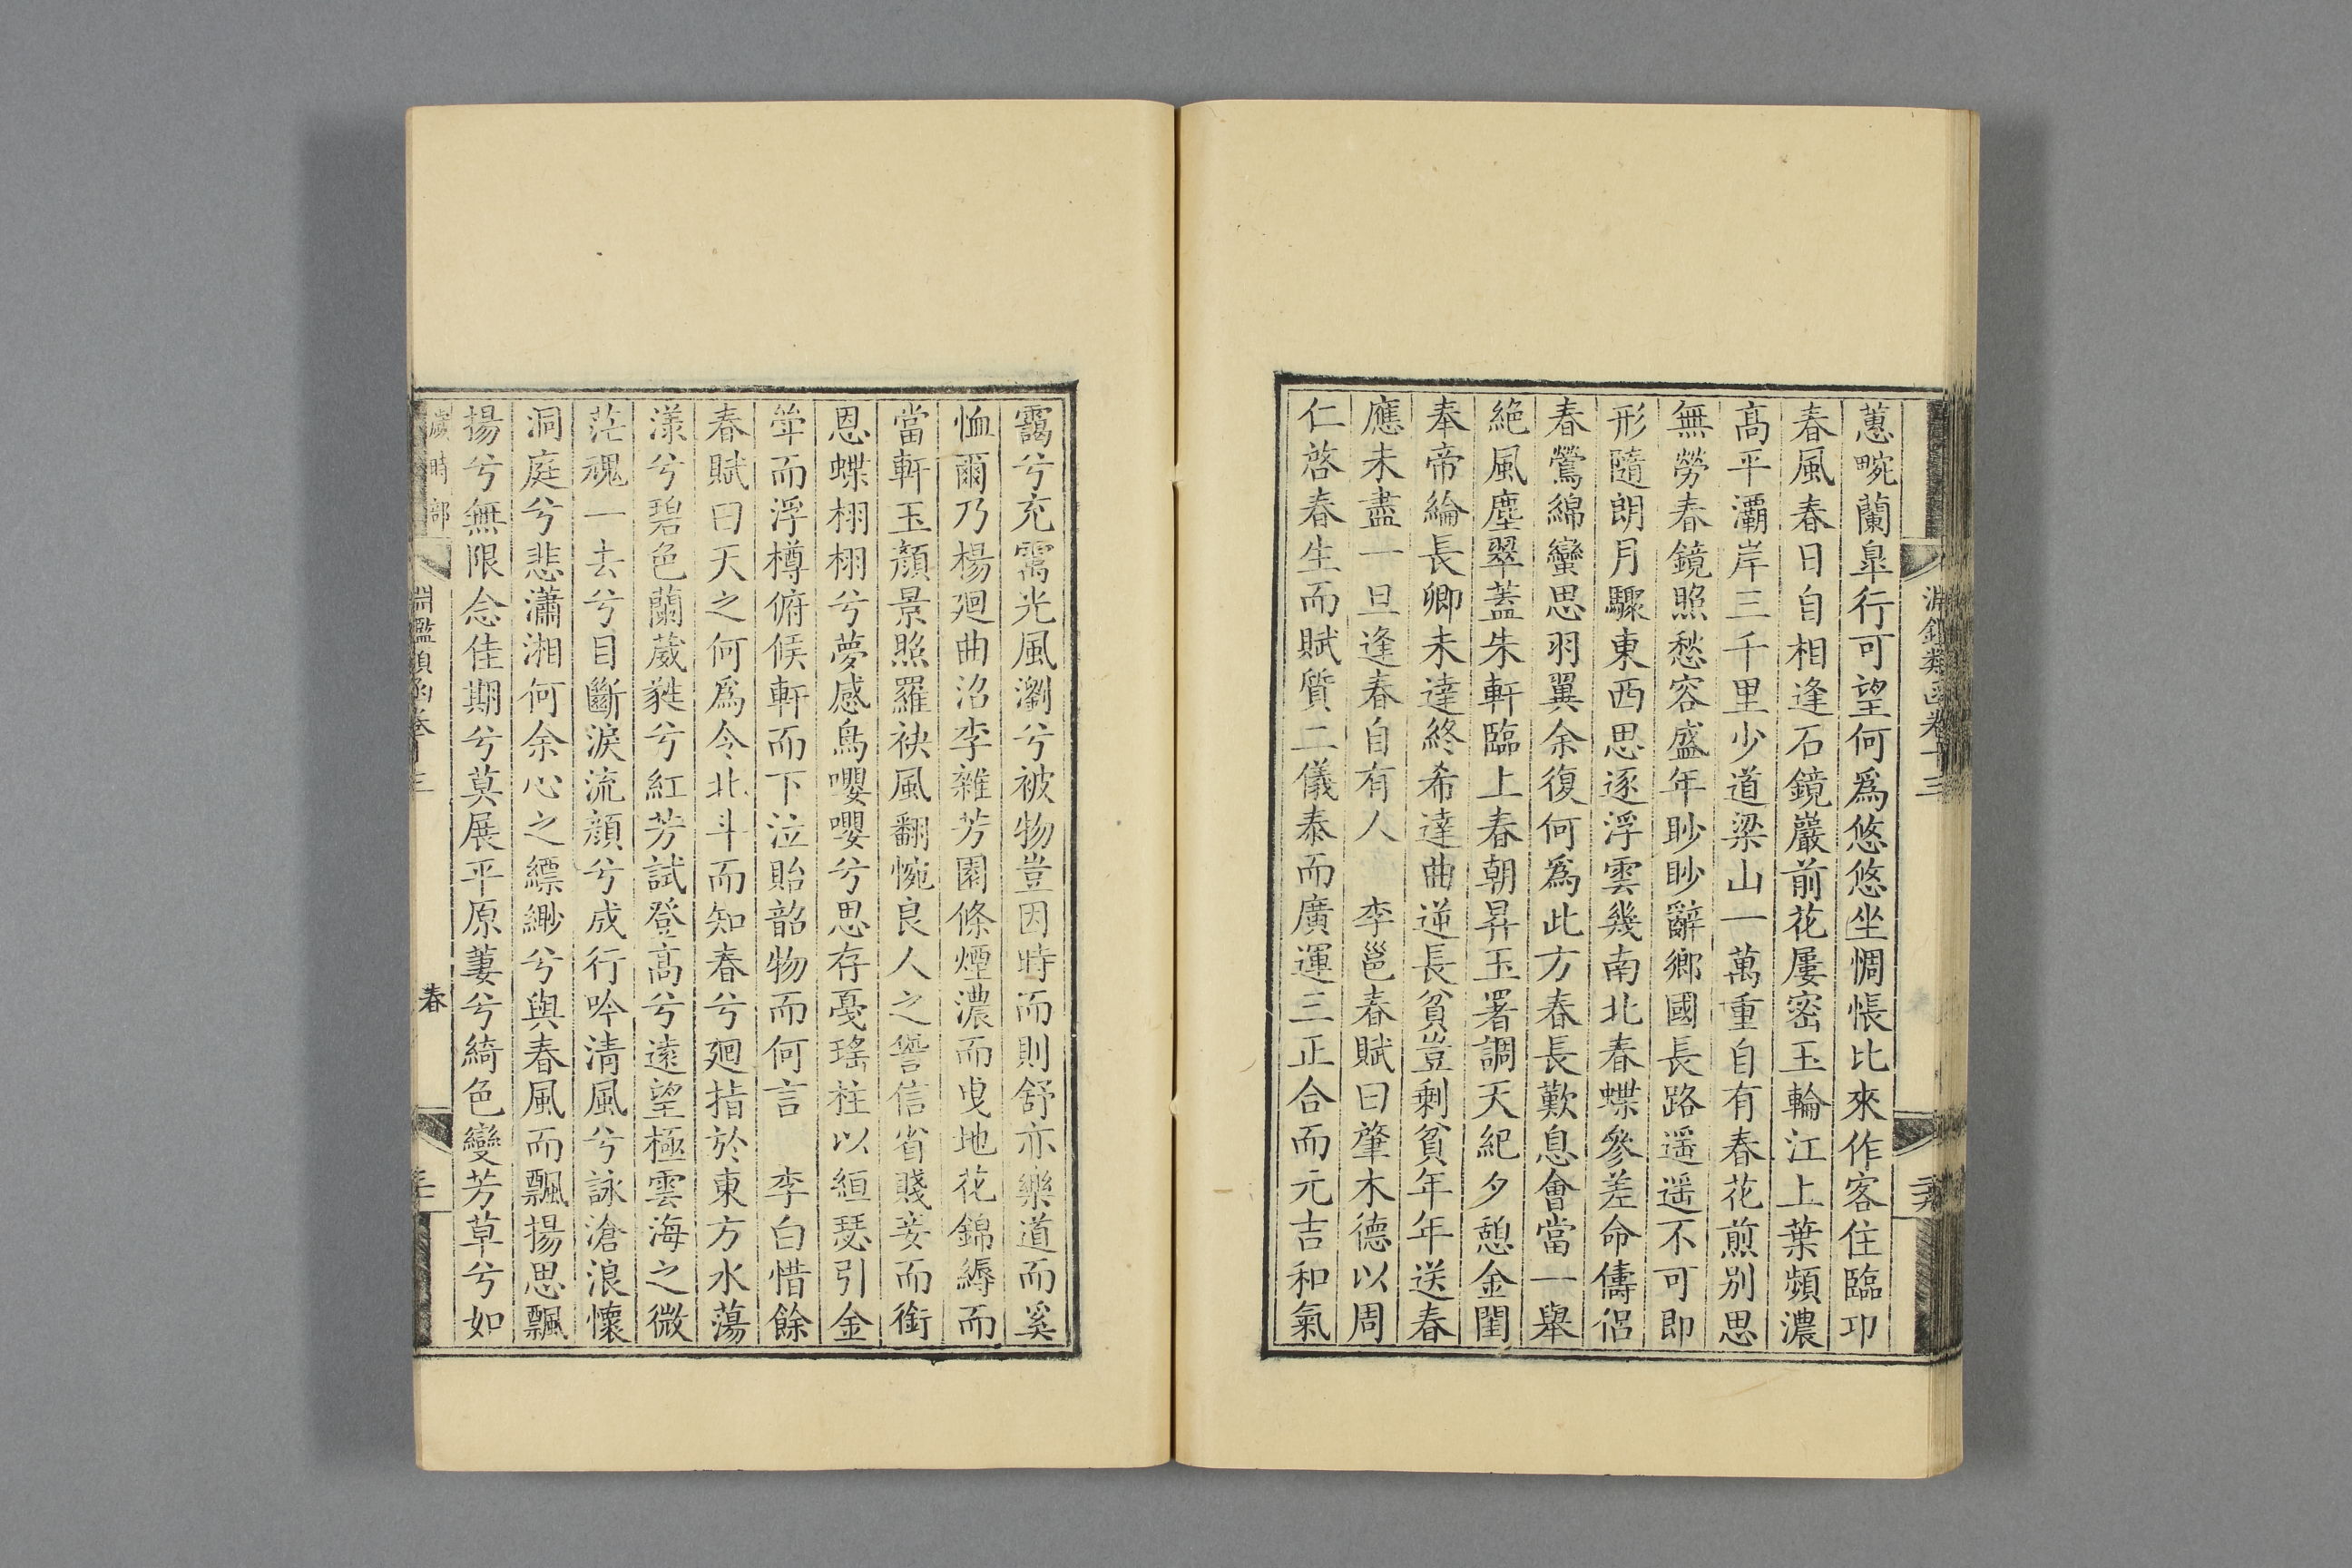 淵鑑類函卷十三
蕙畹蘭臯行可望何爲悠悠坐惆悵比來作客住臨卭
春風春日自相逢石鏡巖前花屢密玉輪江上葉頻濃
髙平灞岸三千里少道梁山一萬重自有春花煎别思
無勞春鏡照愁容盛年眇眇辭鄉國長路遥遥不可即
形隨朗月驟東西思逐浮雲幾南北春蝶參差命儔侣
春鶯綿蠻思羽翼余復何爲此方春長歎息會當一舉
絶風塵翠蓋朱軒臨上春朝昇玉署調天紀夕憩金閨
奉帝綸長卿未達終希達曲逆長貧豈剩貧年年送春
應未盡一旦逢春自有人　李邕春賦曰肇木德以周
仁啓春生而賦質二儀泰而廣運三正合而元吉和氣
靄兮充靄光風瀏兮被物豈因時而則舒亦樂道而奚
恤爾乃楊廻曲沼李雜芳園條煙濃而曳地花錦縟而
當軒玉顔景照羅袂風翻惋良人之響信省賤妾而銜
恩蝶栩栩兮夢感鳥嚶嚶兮思存戞瑤柱以絙瑟引金
斝而浮樽俯候軒而下泣貽韶物而何言　李白惜餘
春賦曰天之何爲令北斗而知春兮廻指於東方水蕩
漾兮碧色蘭葳蕤兮紅芳試登髙兮遠望極雲海之微
茫魂一去兮目斷淚流頰兮成行吟清風兮詠滄浪懷
洞庭兮悲瀟湘何余心之縹緲兮與春風而飄揚思飄
揚兮無限念佳期兮莫展平原萋兮綺色變芳草兮如
歲時部
淵鑑類函卷十三
春